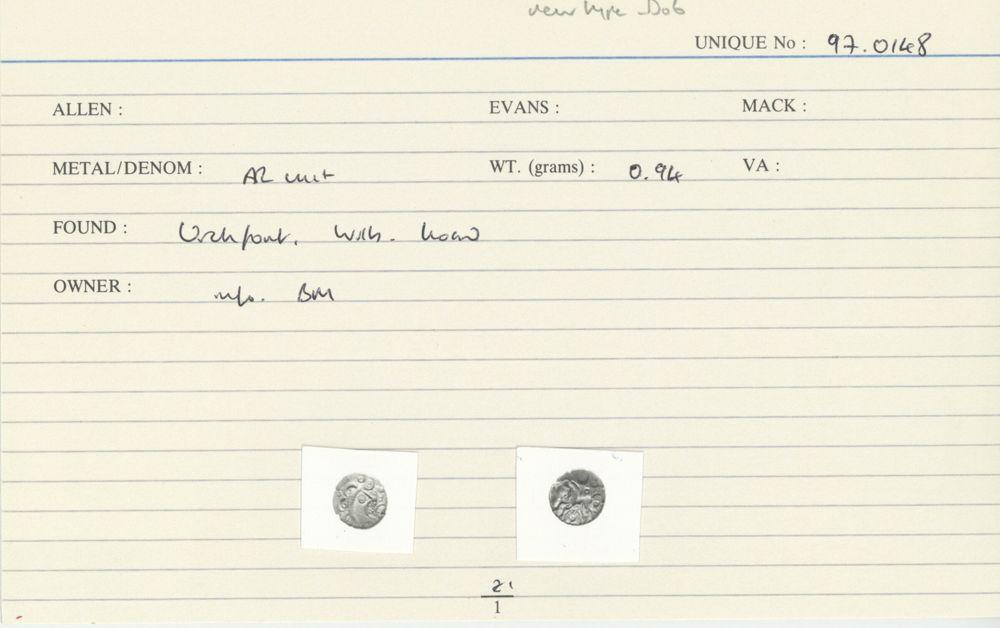 new type Dob
UNIQUE No : 97.0148
ALLEN : EVANS : MACK :
METAL/DENOM : AR unit WT. (grams) : 0.94 VA :
FOUND : Urchfont, Wilts. hoard
OWNER : info. BM
2'
1